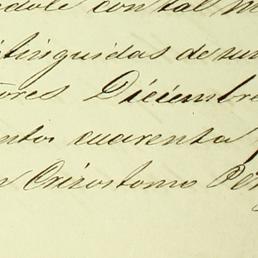 ndole con tal m
itinguidas de su
tores Diciembre
ento cuarenta y
n Crizostomo Pe